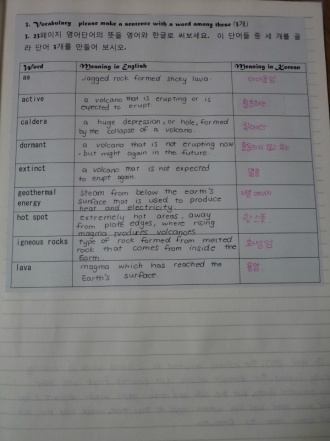 1. Vocabulary please make a sentence with a word among these (3개)
1. 23페이지 영어단어의 뜻을 영어와 한글로 써보세요. 이 단어들 중 세 개를 골
라 단어 3개를 만들어 보시오.
Word Meaning in English Meaning in Korean
aa Jagged rock formed sticky lava 아아용암
active a volcano that is erupting or is
expected to erupt
caldera a huge depression, or hole, formed
by the collapse of a volcano
dormant a volcano that is not erupting now
but might again in the future
extinct a volcano that is not expected
to erupt again 멸종
geothermal steam from below the earth's
energy surface that is used to produce
heat and electricity 지열 에너지
hot spot extremely hot areas, away
from plate edges, where rising
magma produces volcanoes 핫 스폿
igneous rocks type of rock formed from melted
rock that comes from inside the
Earth 화성암
lava magma which has reached the
Earth's surface. 용암